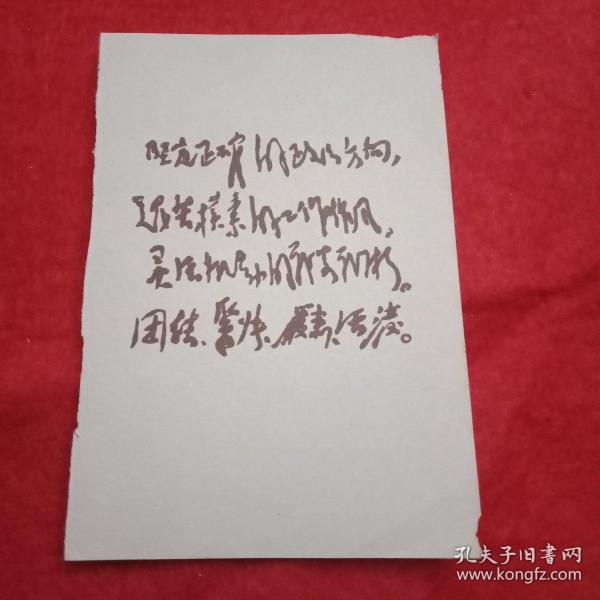 坚定正确的政治方向，
艰苦朴素的工作作风，
灵活机动的战略战术。
团结、紧张、严肃、活泼。
孔夫子旧书网
www.kongfz.com